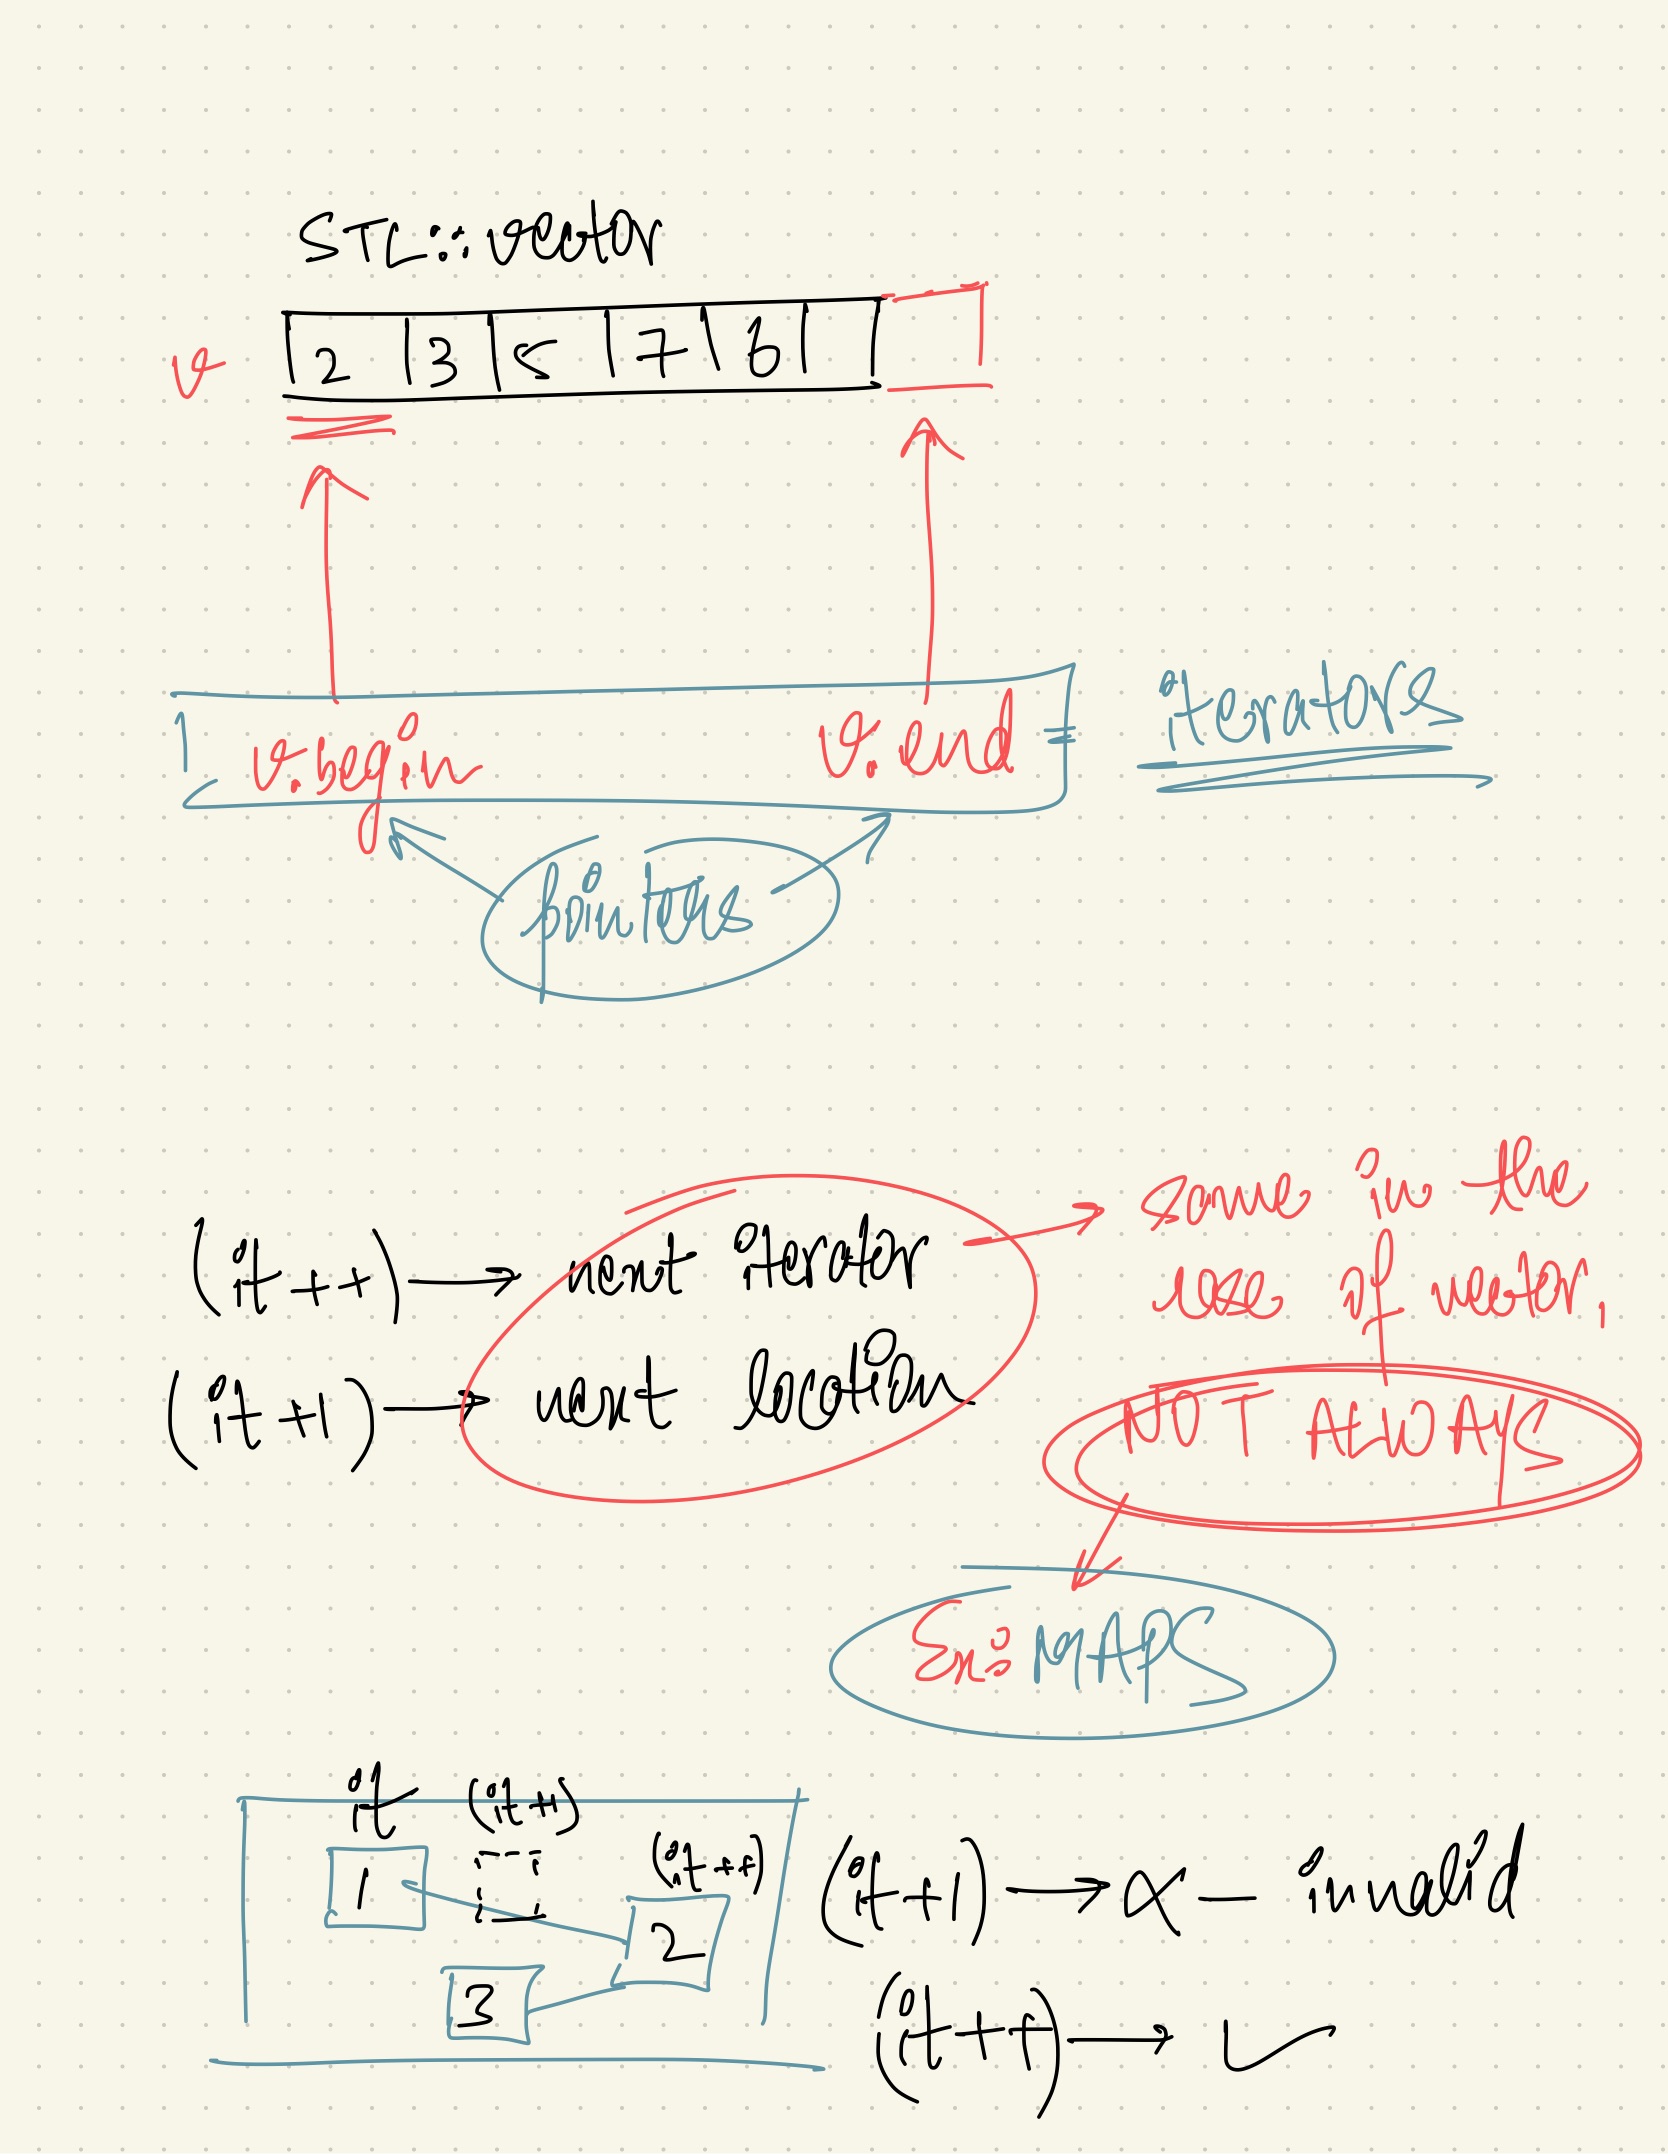 STL::vector
v 2 3 5 7 6
v.begin v.end iterators
pointers
(it++) → next iterator
(it+1) → next location
same in the
case of vector.
NOT ALWAYS
Ex: MAPS
it (it+1) (it++)
1 2 3
(it+1) → x - invalid
(it++) → ✓